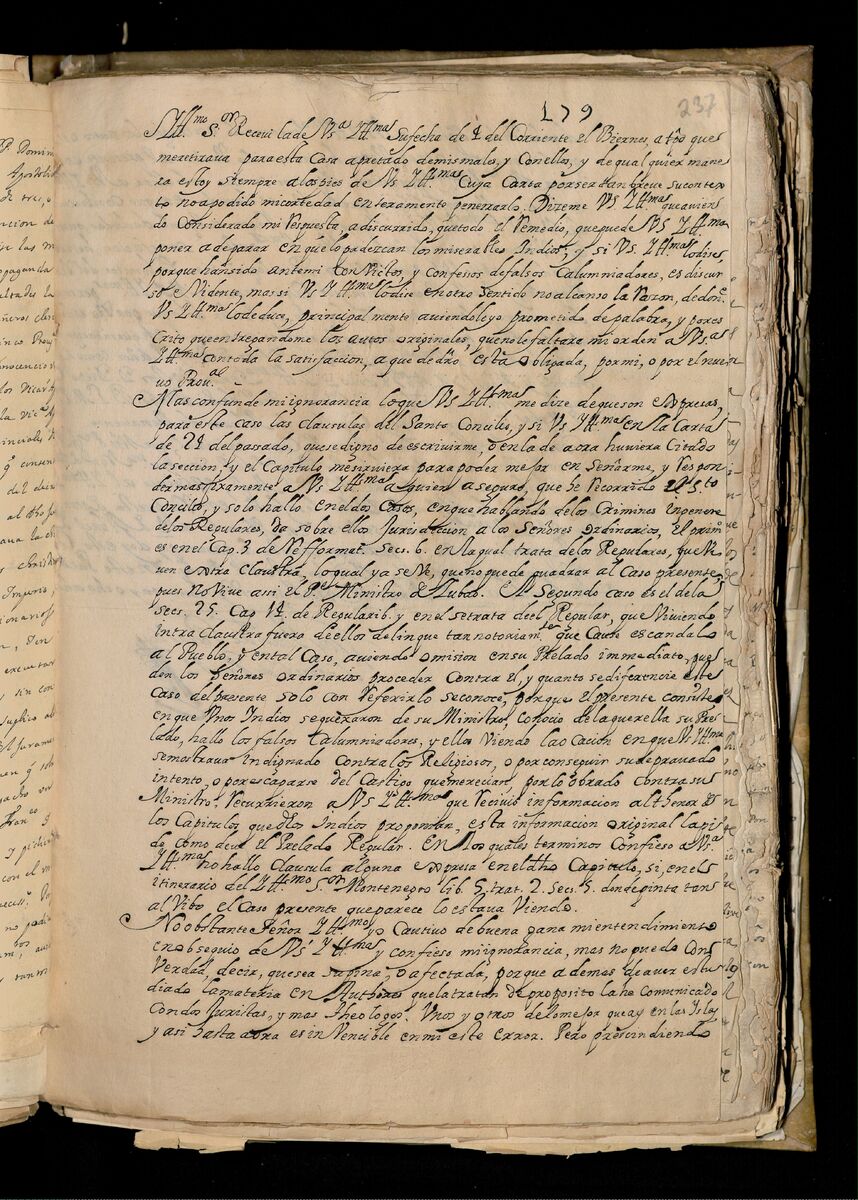 179
237
Yllmo. Sor. Recevi la de Vsa Yllmas su fecha de 1 del Corriente el Biernes, a tpo que
me retirava para esta Casa apretado de mis males, y Con ellos, y de qual quier mane
ra estoy siempre a los pies de Vs Yllmas Cuya Carta por ser tan breve su contex
to no a podido mi cortedad enteramente penetrarlo. Dizeme Vs Yllmas que avien
do Considerado mi Respuesta, a discurrido, que todo el Remedio, que puede Vs Yllma
poner a de parar en que lo padezcan los miserables Indios, y si Vs Yllmas lo dise,
porque han sido ante mi ConVictos, y confesos de falsos Calumniadores, es discur
so eVidente, mas si Vs Yllma lo dice en otro sentido no alcanso la Razon, de donde
Vs Yllma lo deduce, principalmente aviendole yo prometido de palabra, y por es
Crito que entregandome los autos originales, que no le faltara mi orden a Vsas
Yllmas con toda la satisfaccion, a que de dro. esta obligada, por mi, o por el nue
vo Proual.
Mas confunde mi ignorancia lo que Vs Yllmas me dize de que son expresas,
para este caso las clausulas del Santo Concilio, y si Vs Yllmas en la Carta
de 21 del pasado, que se digno de escriuirme, o en la de aora huviera Citado
la seccion, y el Capitulo me sirviera para poder mejor enseñarme, y Respon
der mas foramente a Vs Yllmas a quien aseguro, que he Recorrido el sto
Concilio, y solo hallo en el dos Casos, en que hablando de los Crimines in genere
de los Regulares, da sobre ellos Jurisdiccion a los Señores ordinarios, el primo
es en el Cap. 3 de Refformat. Secs. 6. en la qual trata de los Regulares, que Vi
uen extra claustra, lo qual ya se Ve, que no puede quadrar al Caso presente
pues no Vive asi el Pe. Ministro de Lubao. El Segundo caso es el de la
Secs. 25. Cap 14. de Regularib. y en el se trata de el Regular, que Viviendo
intra claustra fuera de ellos delinque tan notoriamte. que Cause escandalo
al Pueblo, y en tal Caso, aviendo omision en su Prelado immediato, pue
den los Señores ordinarios proceder Contra el, y quanto se diferencie este
Caso del presente solo con Referirlo se conoce, porque el presente consiste
en que Vnos Indios se quexaron de su Ministro, Conocio de la querella su Pre
lado, hallo los falsos Calumniadores, y ellos Viendo la ocacion en que Vs Yllma
se mostrava indignado Contra los Religiosos, o por conseguir su depravado
intento, o por escaparse del Castigo que merecian, por lo obrado contra sus
Ministros. Recurrieron a Vs Yllmas que Recivio informacion al thenor de
los Capitulos, que dhos Indios proponian, esta informacion original la pi
de como deve el Prelado Regular. En los quales terminos Confieso a Vsa
Yllmas no hallo Clausula alguna expresa en el dho Capitulo, si, en el
itinerario del Yllmo Sor Montenegro lib. 5. trat. 2. Secs. 5. donde pinta tan
al Vibo el Caso presente que parece lo estava Viendo.
No obstante Señor Yllmo yo Cautivo de buena gana mi entendimiento
en obsequio de Vsa Yllmas y confieso mi ignorancia, mas no puedo Con
Verdad, decir, que sea supina, o afectada, porque a demas de aver estu
diado la materia en Authores que la tratan de proposito la he Comunicado
Con dos Juristas, y mas theologos. Vnos y otros de lo mejor que ay en las Yslas
y asi hasta aora es inVencible en mi este error. Pero prescindiendo